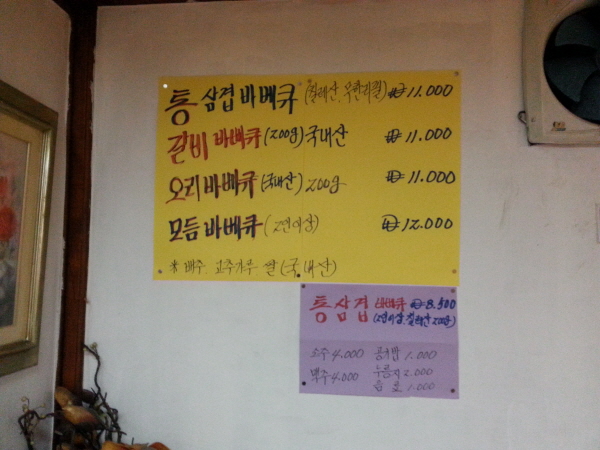 통 삼겹 바베큐 (칠레산, 무한리필) ₩11.000
갈비 바베큐 (200g) 국내산 ₩11.000
오리 바베큐 (국내산) 200g ₩11.000
모듬 바베큐 (2인이상) ₩12.000
※ 배추 고추가루 쌀 (국내산)
통삼겹 바베큐 ₩8.500
(2인이상, 칠레산 200g)
소주 4.000 공기밥 1.000
맥주 4.000 누룽지 2.000
음료 1.000